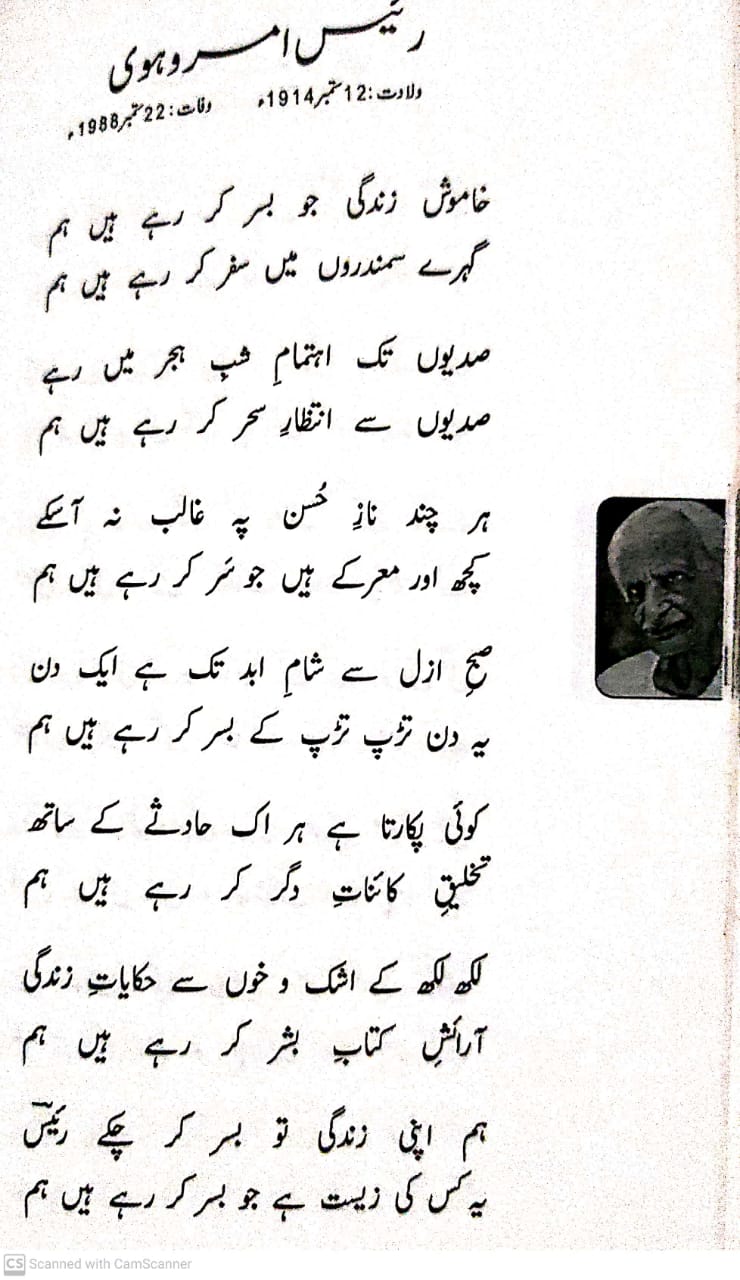 رئیس امروہوی
ولادت: 12 ستمبر 1914ء وفات: 22 ستمبر 1988ء
خاموش زندگی جو بسر کر رہے ہیں ہم
گہرے سمندروں میں سفر کر رہے ہیں ہم
صدیوں تک اہتمامِ شبِ ہجر میں رہے
صدیوں سے انتظارِ سحر کر رہے ہیں ہم
ہر چند نازِ حُسن پہ غالب نہ آسکے
کچھ اور معرکے ہیں جو سَر کر رہے ہیں ہم
صبحِ ازل سے شامِ ابد تک ہے ایک دن
یہ دن تڑپ تڑپ کے بسر کر رہے ہیں ہم
کوئی پکارتا ہے ہر اک حادثے کے ساتھ
تخلیقِ کائناتِ دگر کر رہے ہیں ہم
لکھ لکھ کے اشک و خوں سے حکایاتِ زندگی
آرائشِ کتابِ بشر کر رہے ہیں ہم
ہم اپنی زندگی تو بسر کر چکے رئیسؔ
یہ کس کی زیست ہے جو بسر کر رہے ہیں ہم
CS Scanned with CamScanner